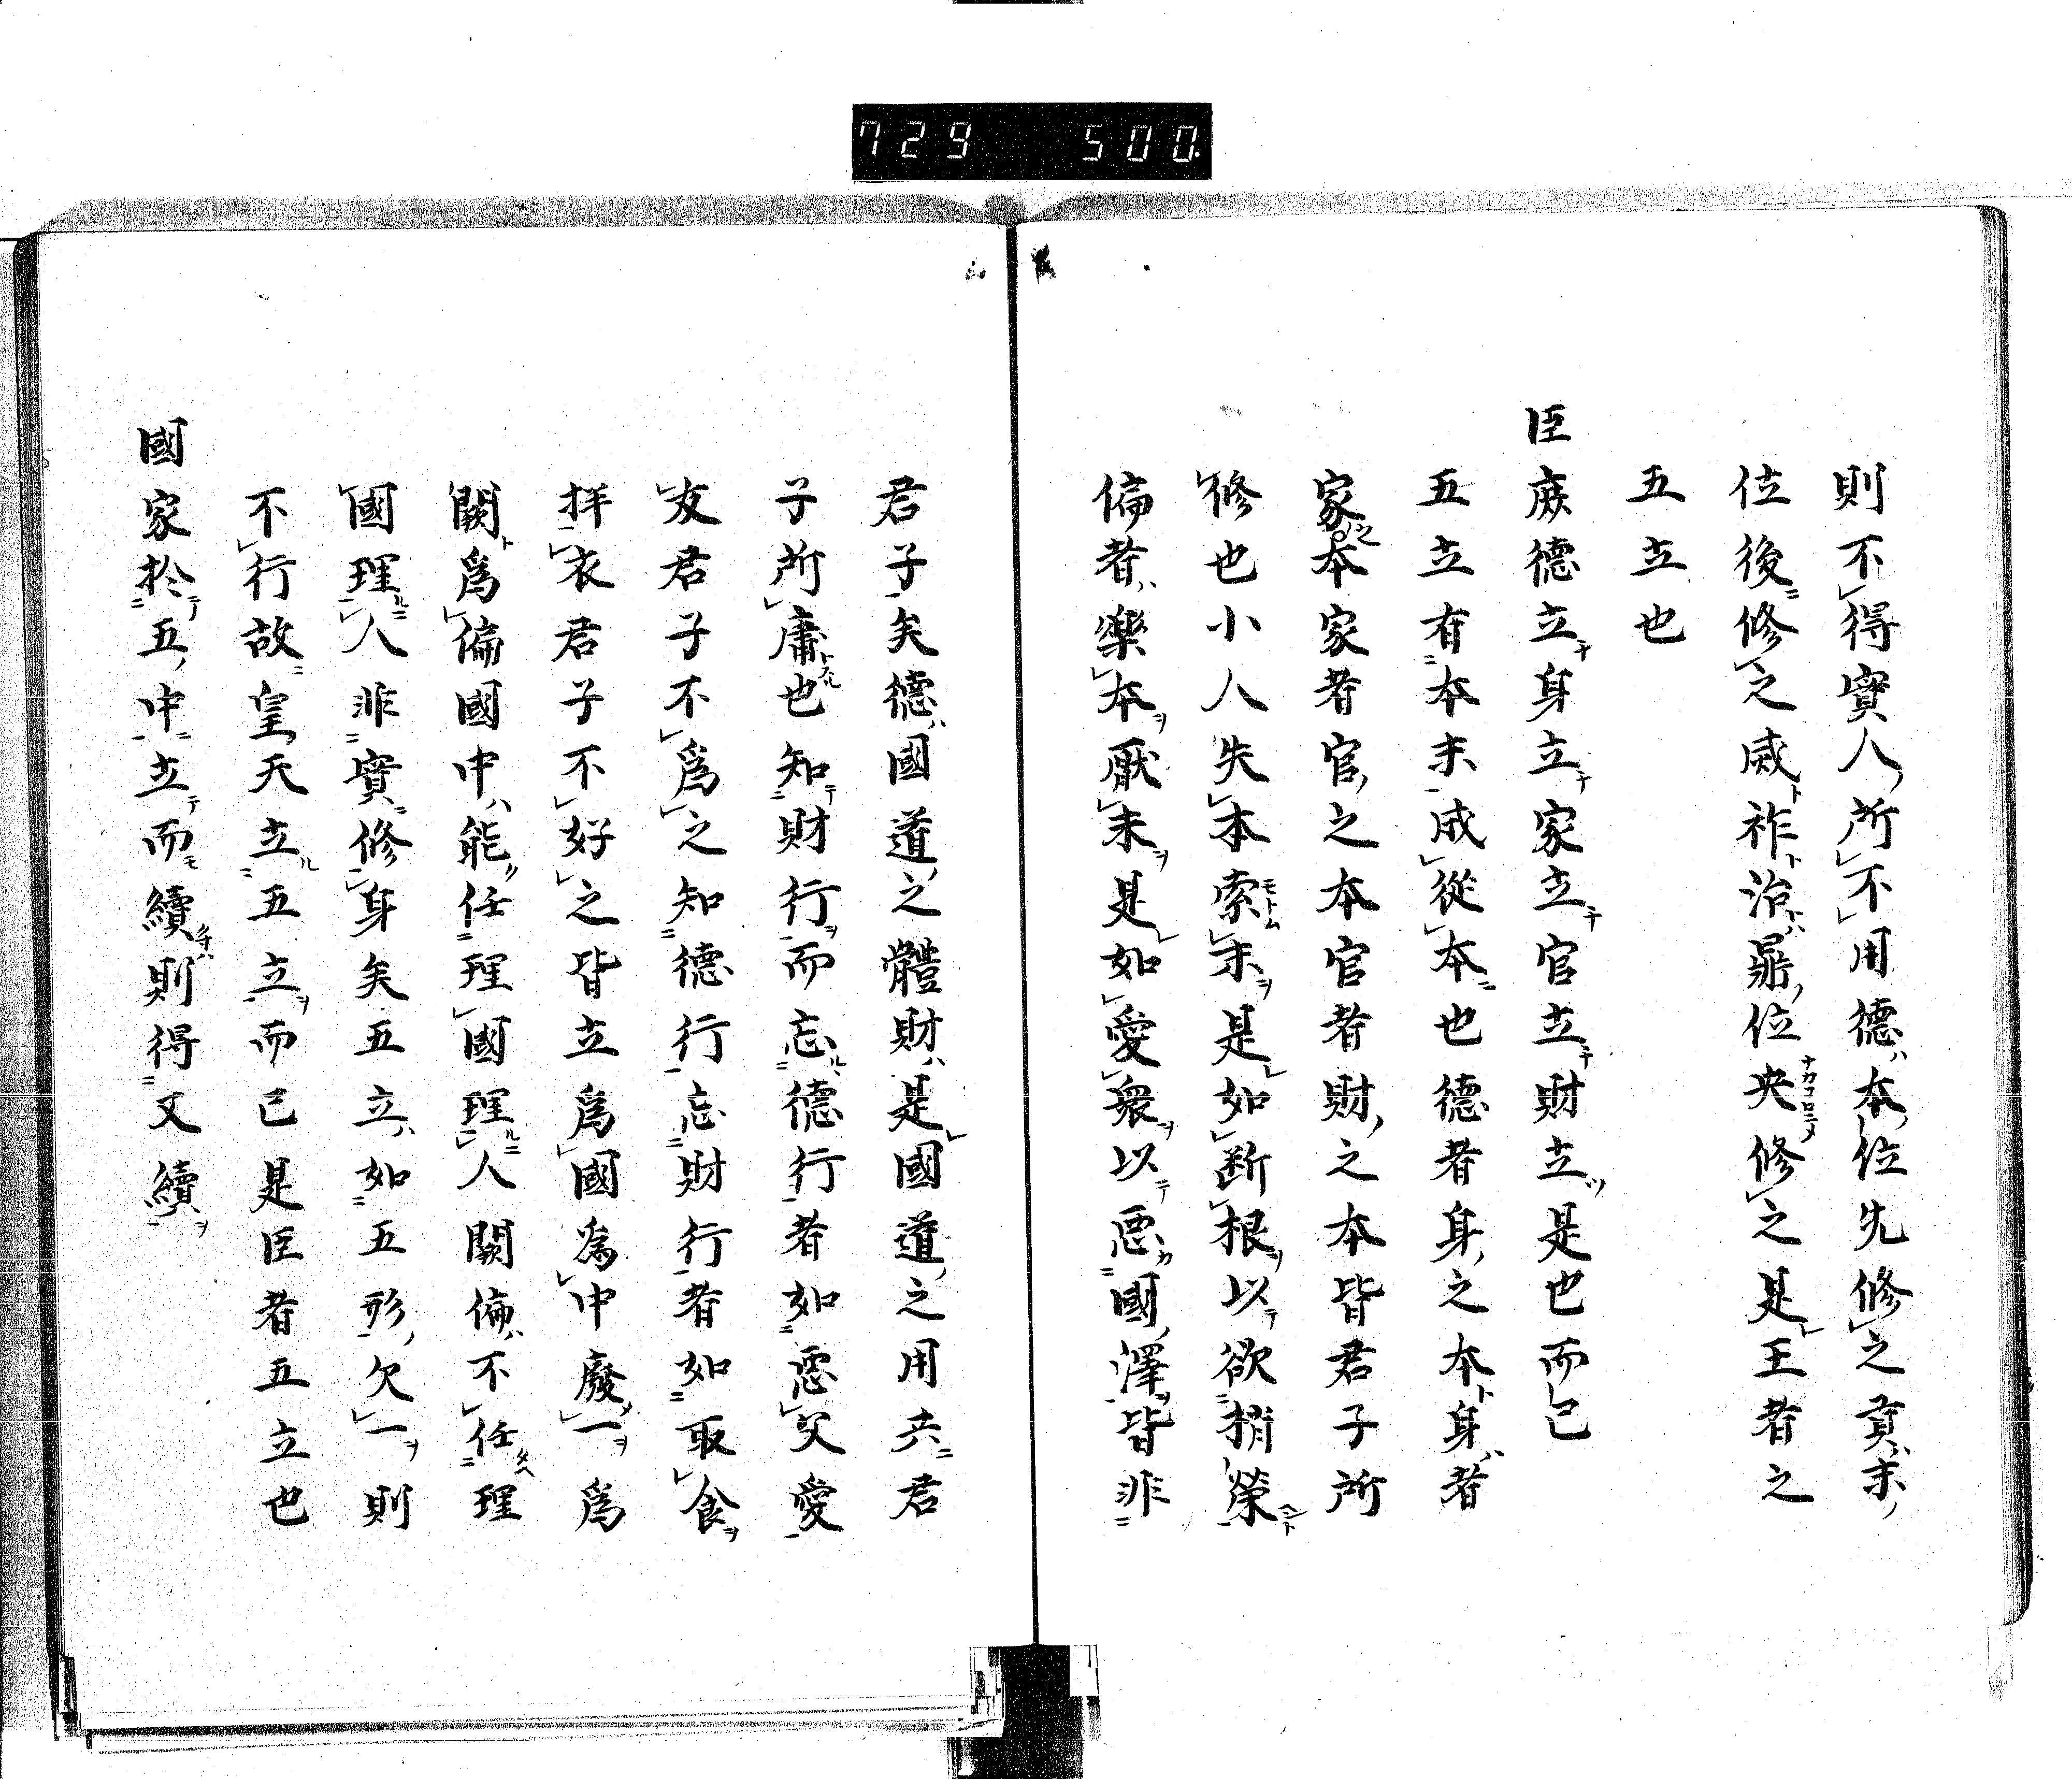 729 500.
則不得實人所不用德本位先修之貢末
位後修之戚祚治鼎位央修之是王者之
五立也
臣庶德立身立家立官立財立是也而已
五立有本末成從本也德者身之本身者
家之本家者官之本官者財之本皆君子所
修也小人失本索末是如断根以欲梢榮
偏者樂本厭末是如愛衆以惡國澤皆非
君子矣德國道之體財是國道之用共君
子所庸也知財行而忘德行者如惡父愛
友君子不爲之知德行忘財行者如取食
拝衣君子不好之皆立爲國爲中廢一爲
闕爲偏國中能任理國理人闕偏不任理
國理人非實修身矣五立如五形欠一則
不行故皇天立五立而已是臣者五立也
國家於五中立而續則得又續